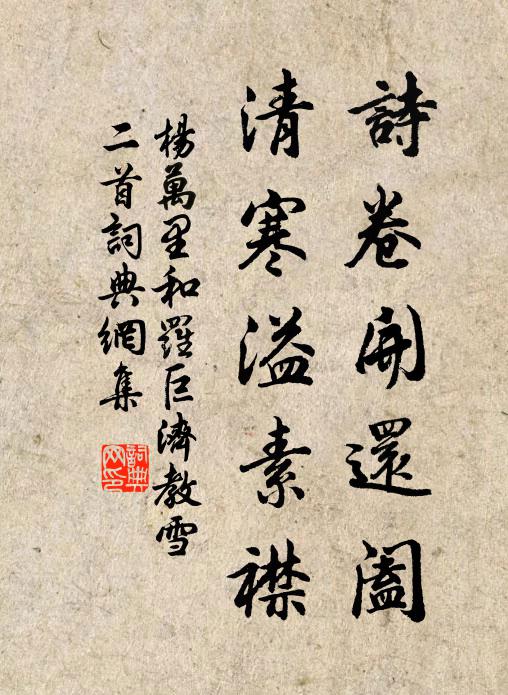 詩卷開還闔
清寒溢素襟
楊萬里和羅巨濟教雪
二首詞典網集
詞典网印